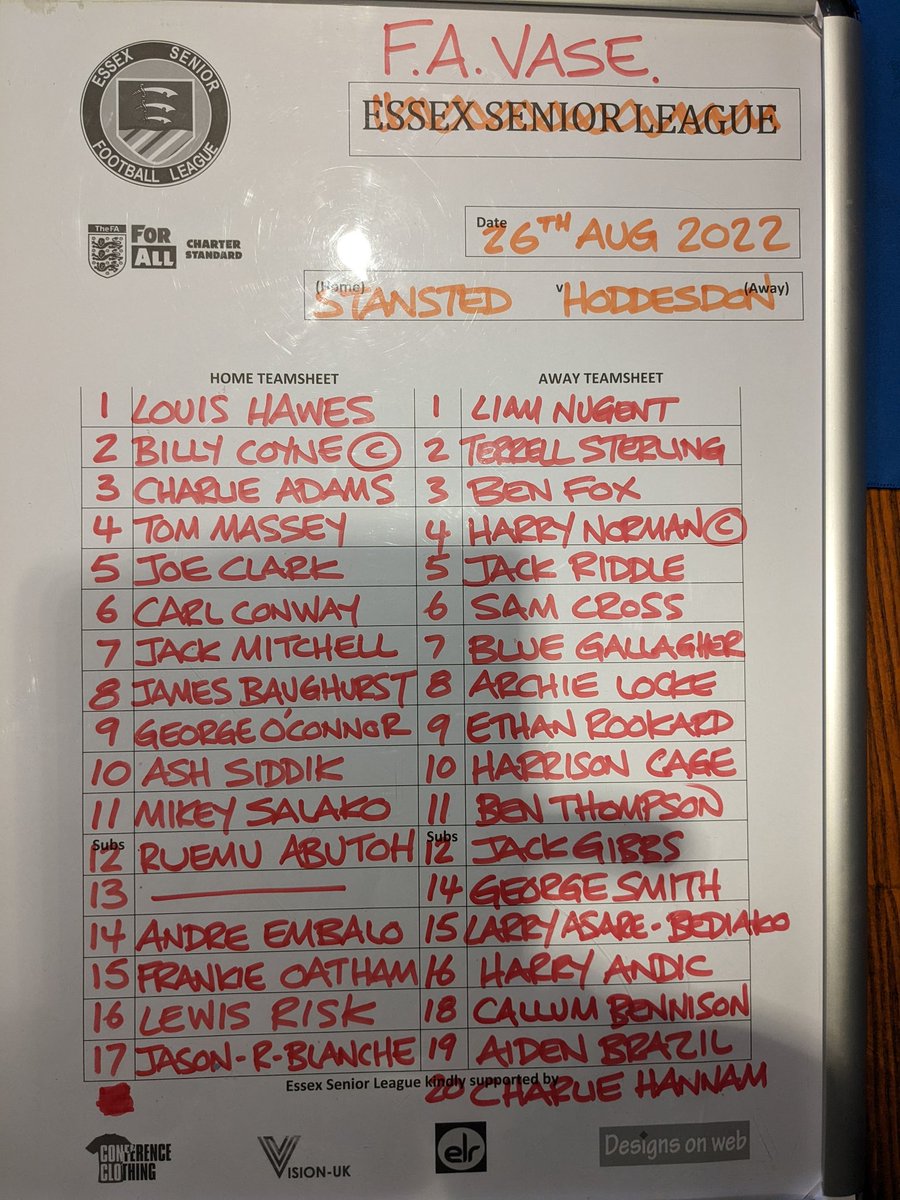 F.A. VASE.
ESSEX SENIOR FOOTBALL LEAGUE
ESSEX SENIOR LEAGUE
TheFA FOR ALL CHARTER STANDARD
Date 26TH AUG 2022
(Home) STANSTED v HODDESDON (Away)
HOME TEAMSHEET AWAY TEAMSHEET
1 LOUIS HAWES 1 LIAM NUGENT
2 BILLY COYNE C 2 TERRELL STERLING
3 CHARLIE ADAMS 3 BEN FOX
4 TOM MASSEY 4 HARRY NORMAN C
5 JOE CLARK 5 JACK RIDDLE
6 CARL CONWAY 6 SAM CROSS
7 JACK MITCHELL 7 BLUE GALLAGHER
8 JAMES BAUGHURST 8 ARCHIE LOCKE
9 GEORGE O'CONNOR 9 ETHAN ROOKARD
10 ASH SIDDIK 10 HARRISON CAGE
11 MIKEY SALAKO 11 BEN THOMPSON
Subs 12 RUEMU ABUTOH Subs 12 JACK GIBBS
13 14 GEORGE SMITH
14 ANDRE EMBALO 15 LARRY ASARE-BEDIAKO
15 FRANKIE OATHAM 16 HARRY ANDIC
16 LEWIS RISK 18 CALLUM BENNISON
17 JASON-R-BLANCHE 19 AIDEN BRAZIL
20 CHARLIE HANNAM
Essex Senior League kindly supported by
CONFERENCE CLOTHING VISION-UK elr Designs on web